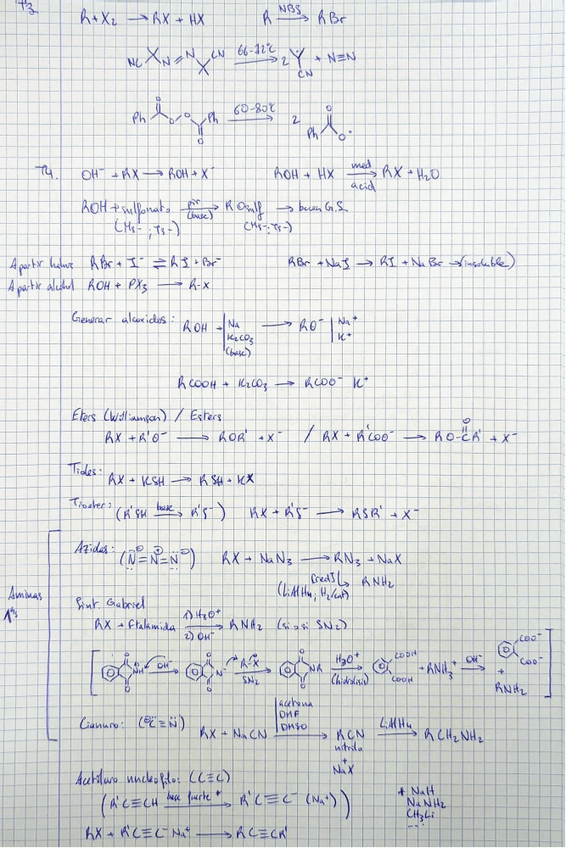 T3
R + X₂ → RX + HX    R —NBS→ RBr
NC N=N CN —66-72°C→ 2 CN + N≡N
Ph O O–O Ph O —60-80°C→ 2 Ph O O·
T4. OH⁻ + RX → ROH + X⁻    ROH + HX —med acid→ RX + H₂O
ROH + sulfonato —pir (base)→ ROsulf → buen G.S.
(Ms- ; Ts-)    (Ms- ; Ts-)
A partir RBr + I⁻ ⇌ RI + Br⁻    RBr + NaI → RI + NaBr → (insoluble)
A partir alcohol ROH + PX₃ → R-X
Generar alcoxidos: ROH + | Na K₂CO₃ (base) → RO⁻ | Na⁺ K⁺
RCOOH + K₂CO₃ → RCOO⁻ K⁺
Eters (Williamson) / Esters
RX + R'O⁻ → ROR' + X⁻ / RX + R'COO⁻ → RO-C(=O)R' + X⁻
Tioles:
RX + KSH → RSH + KX
(R'SH —base→ R'S⁻)    RX + R'S⁻ → RSR' + X⁻
Azidas: (N⁻=N⁺=N⁻)    RX + NaN₃ → RN₃ + NaX
(LiAlH₄, H₂/cat) [red] → RNH₂
Aminas 1ªs
Sint. Gabriel
RX + Ftalamida —1) H₃O⁺ 2) OH⁻→ RNH₂ (si o si SN2)
[ O NH O —OH⁻→ O N⁻ O —R-X SN2→ O NR O —H₃O⁺ (hidrólisis)→ COOH COOH + RNH₃⁺ —OH⁻→ COO⁻ COO⁻ + RNH₂ ]
Cianuro: (⁻C≡N)    RX + NaCN —| acetona DMF DMSO→ RCN nitrilo + NaX —LiAlH₄→ RCH₂NH₂
Acetiluro nucleófilo: (C≡C)
(R'C≡CH —base fuerte *→ R'C≡C⁻ (Na⁺))    * NaH NaNH₂ CH₃Li ...
RX + R'C≡C⁻ Na⁺ → RC≡CR'